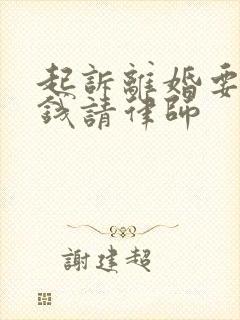 起訴離婚要
錢請律師
謝建超